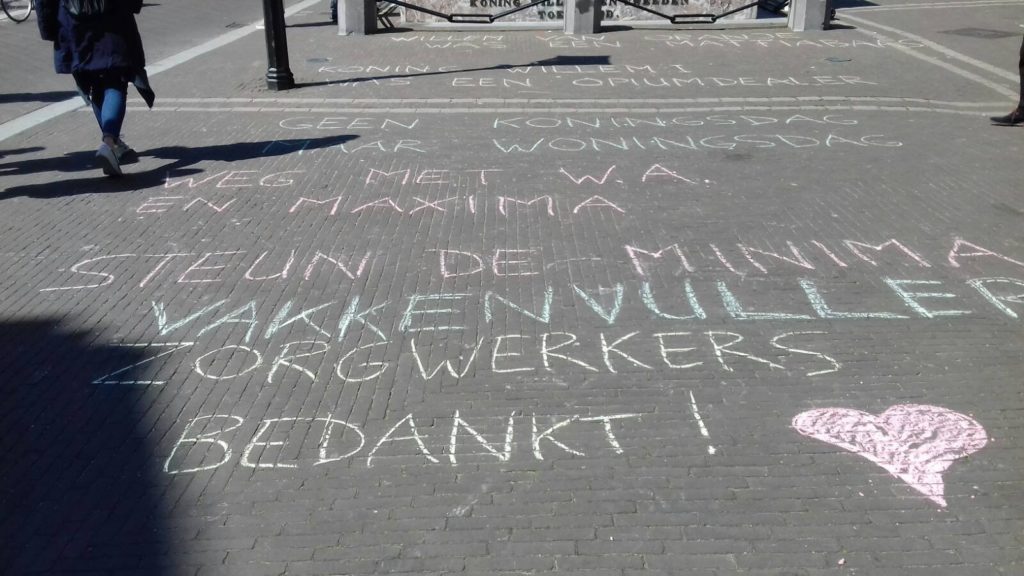 KONING
WAS EEN
KONIN WILLEM I
WAS EEN OPIUMDEALER
GEEN KONINGSDAG
MAAR WONINGSDAG
WEG MET W.A.
EN MAXIMA
STEUN DE MINIMA
VAKKENVULLER
ZORGWERKERS
BEDANKT!